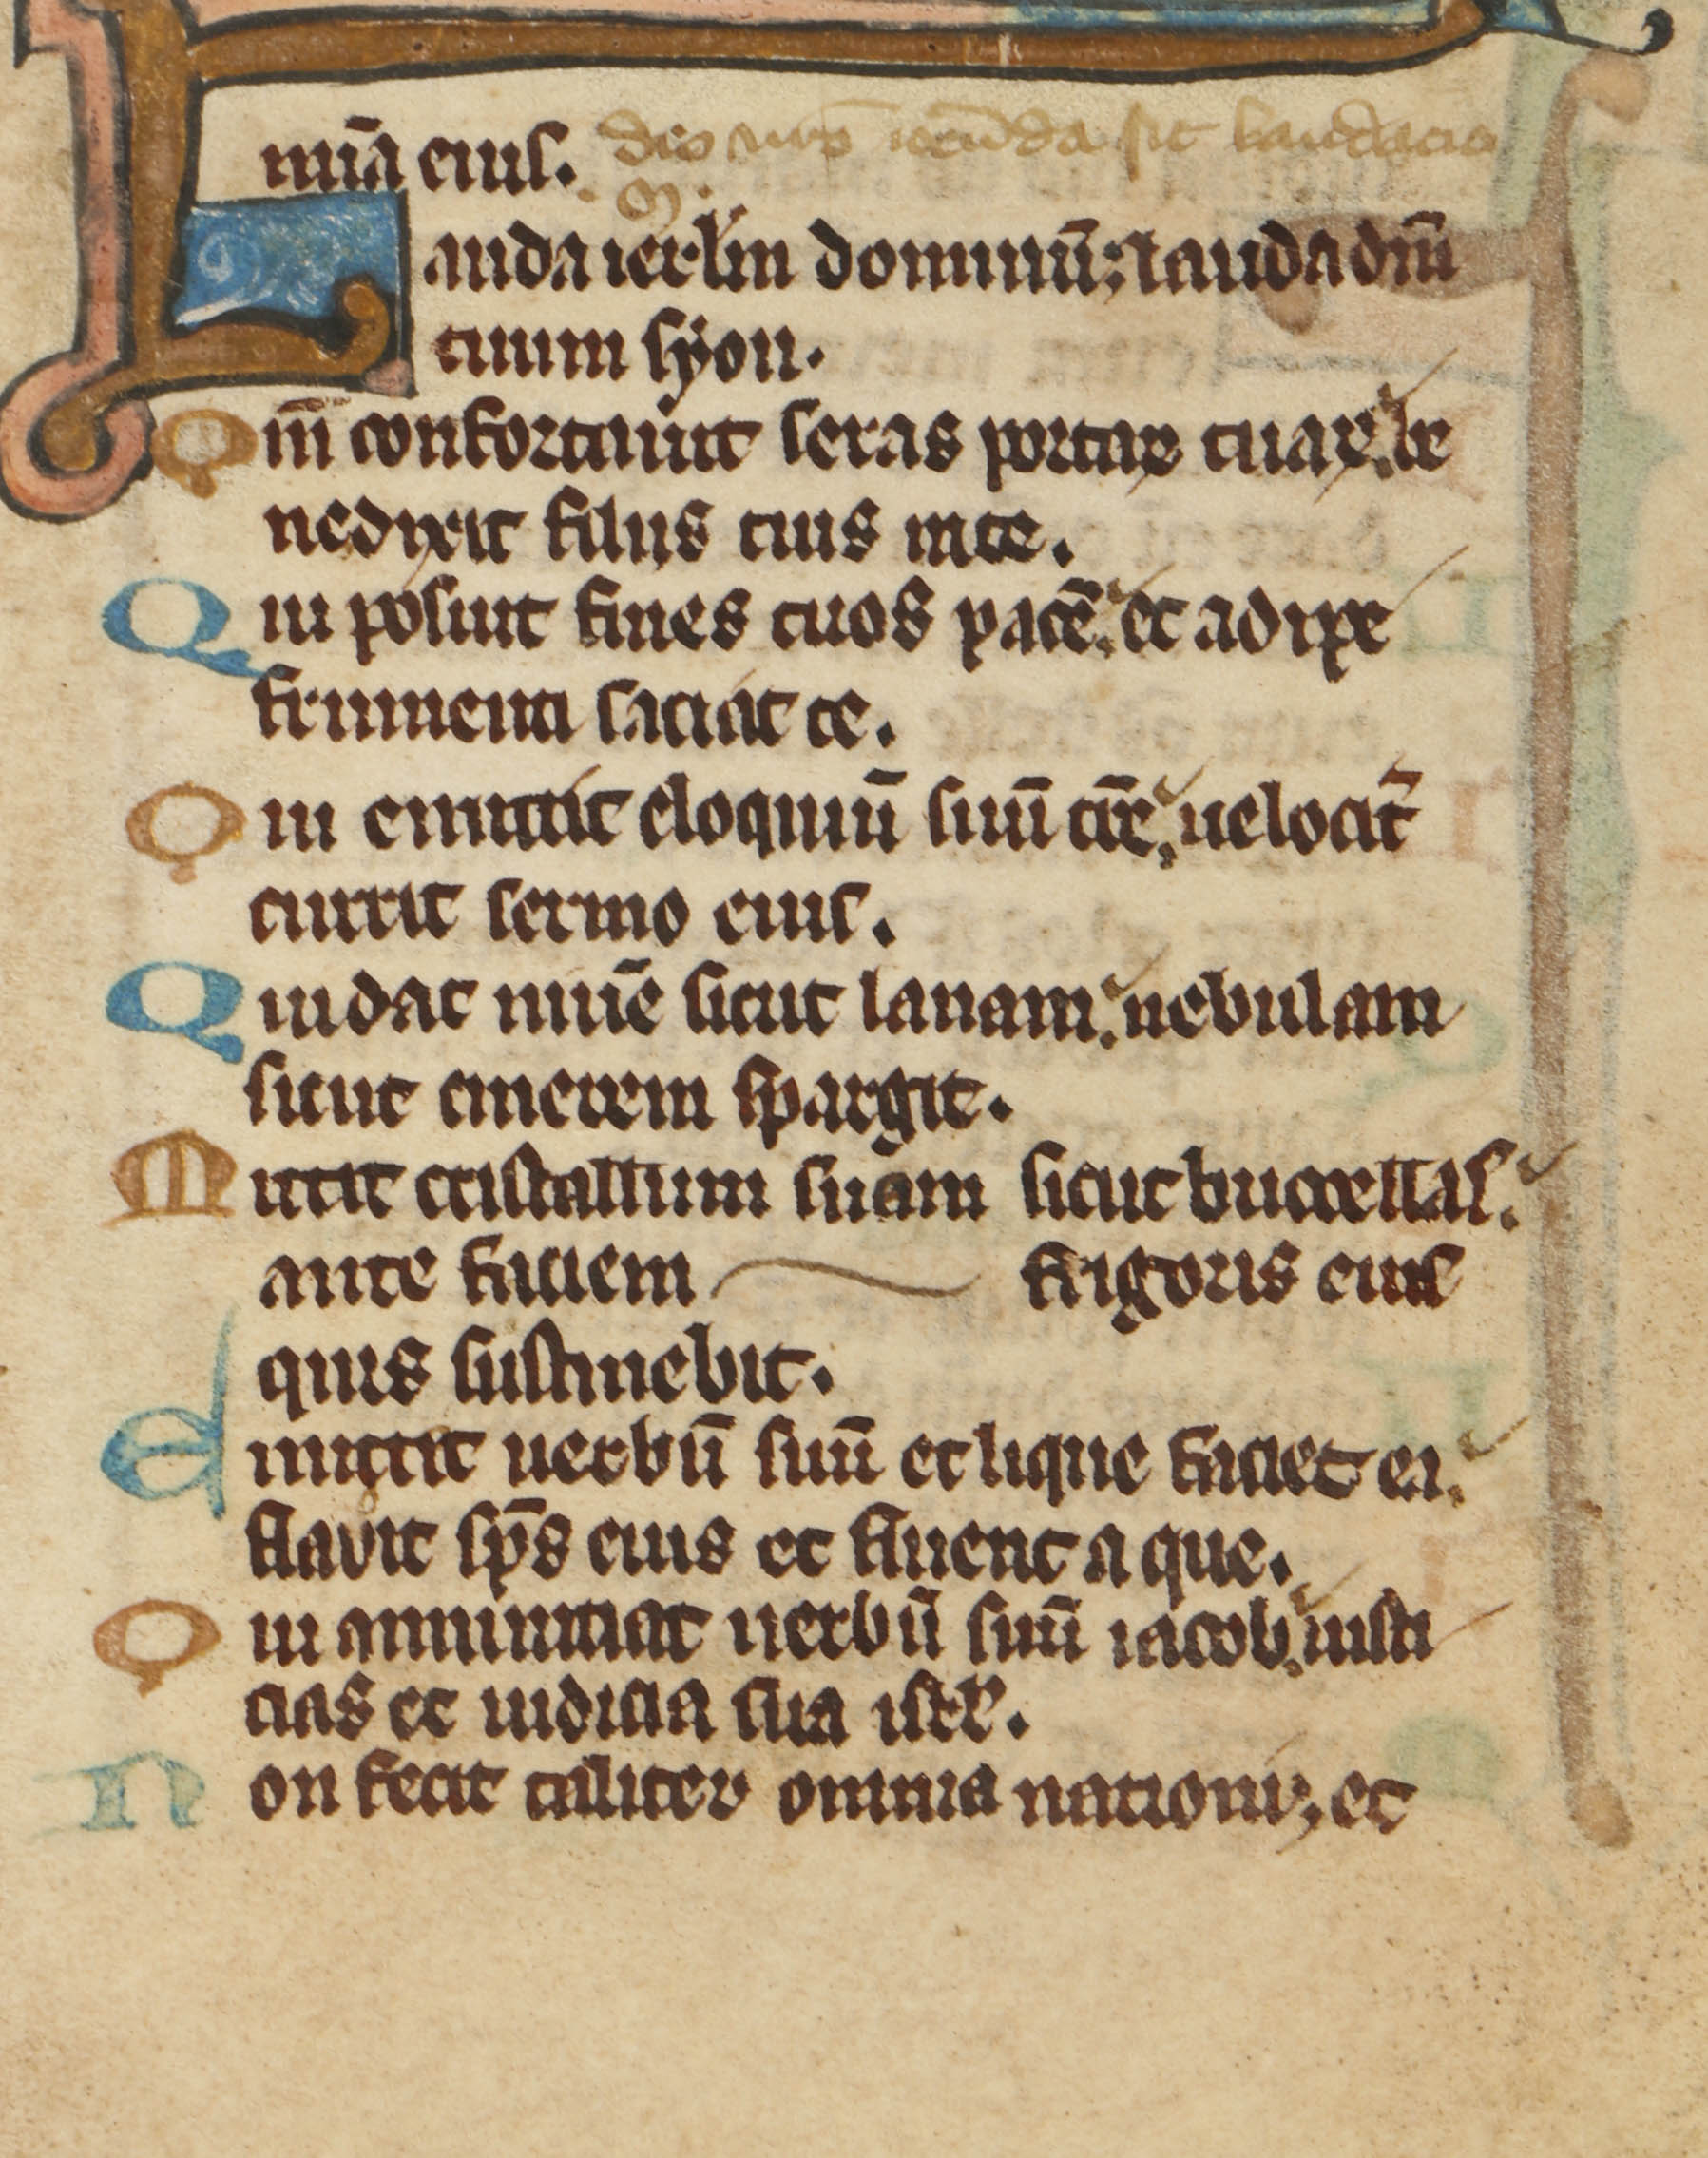 nuā eius. deo nr̄o iocūda sit laudacio
Lauda ierl̄m dominū; lauda dn̄m
tuum syon.
Qm̄ confortauit seras portaꝝ tuaꝝ. be
nedixit filiis tuis in te.
Qui posuit fines tuos pacē. et adipe
frumenti saciat te.
Qui emittit eloquiū suū tīre, uelocit̄
currit sermo eius.
Qui dat niuē sicut lanam. nebulam
sicut cinerem spargit.
Mittit cristallum suam sicut buccellas.
ante faciem frigoris eius
quis sustinebit.
Emittet uerbū suū et lique faciet ei.
flavit sp̄s eius et fluent a que.
Qui annuntiat uerbū suū iacob, iusti
cias et iudicia sua isrl̄.
non fecit taliter omnia nationi; et